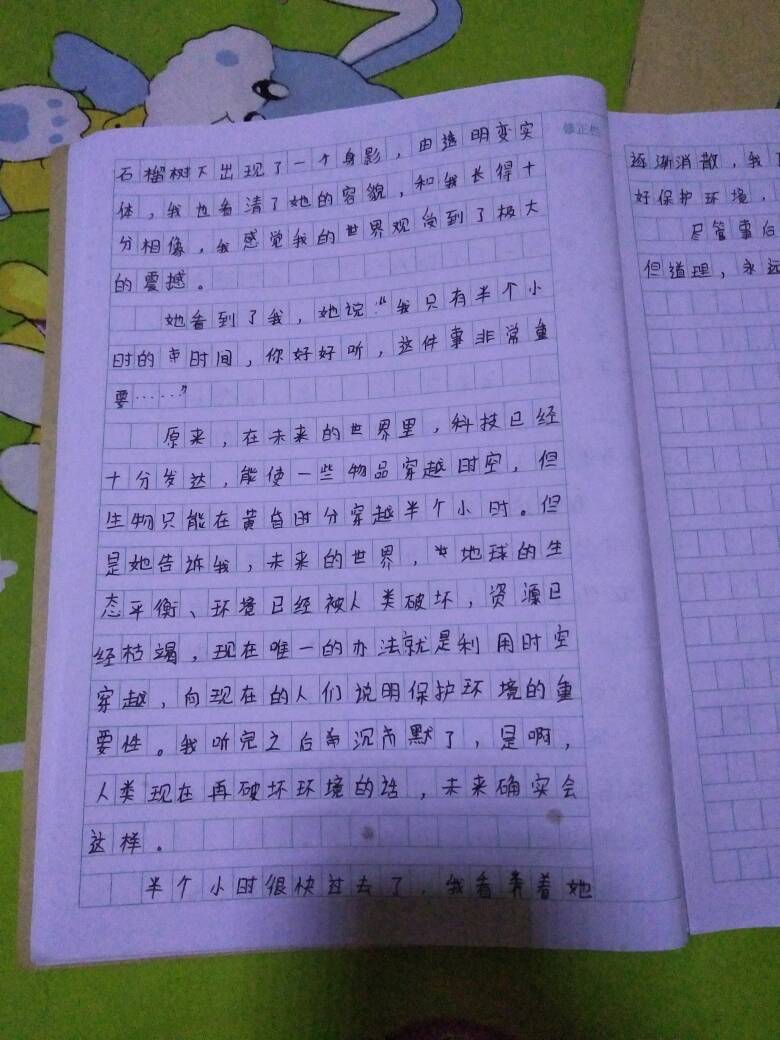 石榴树下出现了一个身影，由透明变实
体，我也看清了她的容貌，和我长得十
分相像，我感觉我的世界观受到了极大
的震撼。
她看到了我，她说“我只有半个小
时的时间，你好好听，这件事非常重
要……”
原来，在未来的世界里，科技已经
十分发达，能使一些物品穿越时空，但
生物只能在黄昏时分穿越半个小时。但
是她告诉我，未来的世界，地球的生
态平衡、环境已经被人类破坏，资源已
经枯竭，现在唯一的办法就是利用时空
穿越，向现在的人们说明保护环境的重
要性。我听完之后沉默了，是啊，
人类现在再破坏环境的话，未来确实会
这样。
半个小时很快过去了，我看着她
修正栏
逐渐消散，我
好保护环境，
尽管事后
但道理，永远